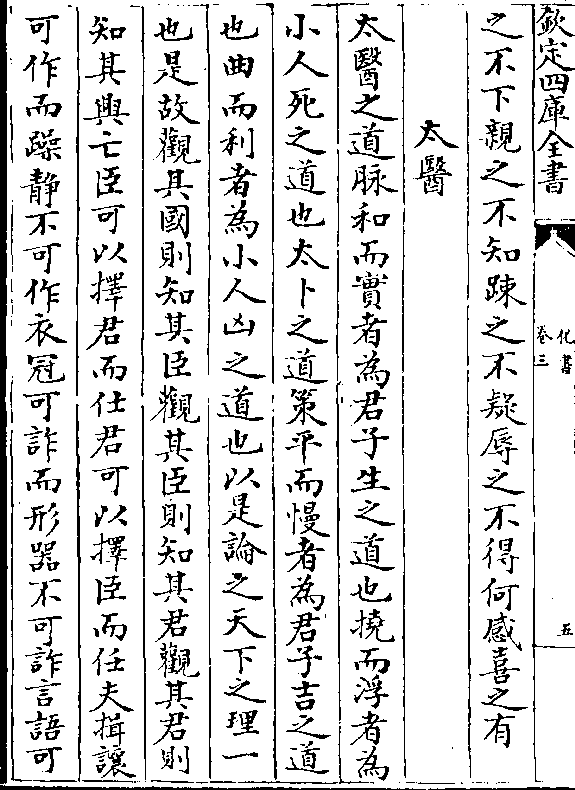 欽定四庫全書
化書
卷三
五
之不下親之不知踈之不疑辱之不得何感喜之有
太醫
太醫之道脉和而實者為君子生之道也撓而浮者為
小人死之道也太卜之道策平而慢者為君子吉之道
也曲而利者為小人凶之道也以是論之天下之理一
也是故觀其國則知其臣觀其臣則知其君觀其君則
知其興亡臣可以擇君而仕君可以擇臣而任夫揖讓
可作而躁静不可作衣冠可詐而形器不可詐言語可